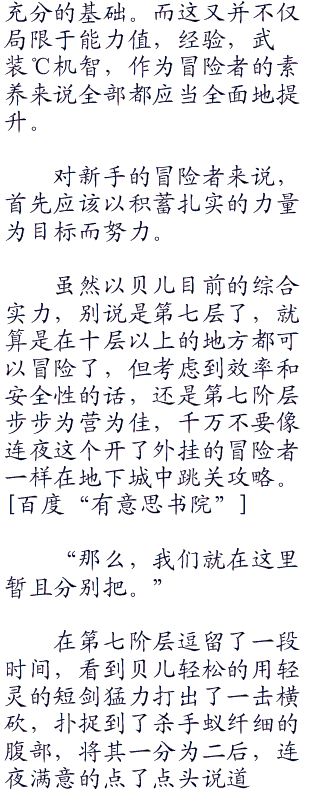 充分的基础。而这又并不仅
局限于能力值，经验，武
装℃机智，作为冒险者的素
养来说全部都应当全面地提
升。
对新手的冒险者来说，
首先应该以积蓄扎实的力量
为目标而努力。
虽然以贝儿目前的综合
实力，别说是第七层了，就
算是在十层以上的地方都可
以冒险了，但考虑到效率和
安全性的话，还是第七阶层
步步为营为佳，千万不要像
连夜这个开了外挂的冒险者
一样在地下城中跳关攻略。
[百度“有意思书院”]
“那么，我们就在这里
暂且分别把。”
在第七阶层逗留了一段
时间，看到贝儿轻松的用轻
灵的短剑猛力打出了一击横
砍，扑捉到了杀手蚁纤细的
腹部，将其一分为二后，连
夜满意的点了点头说道